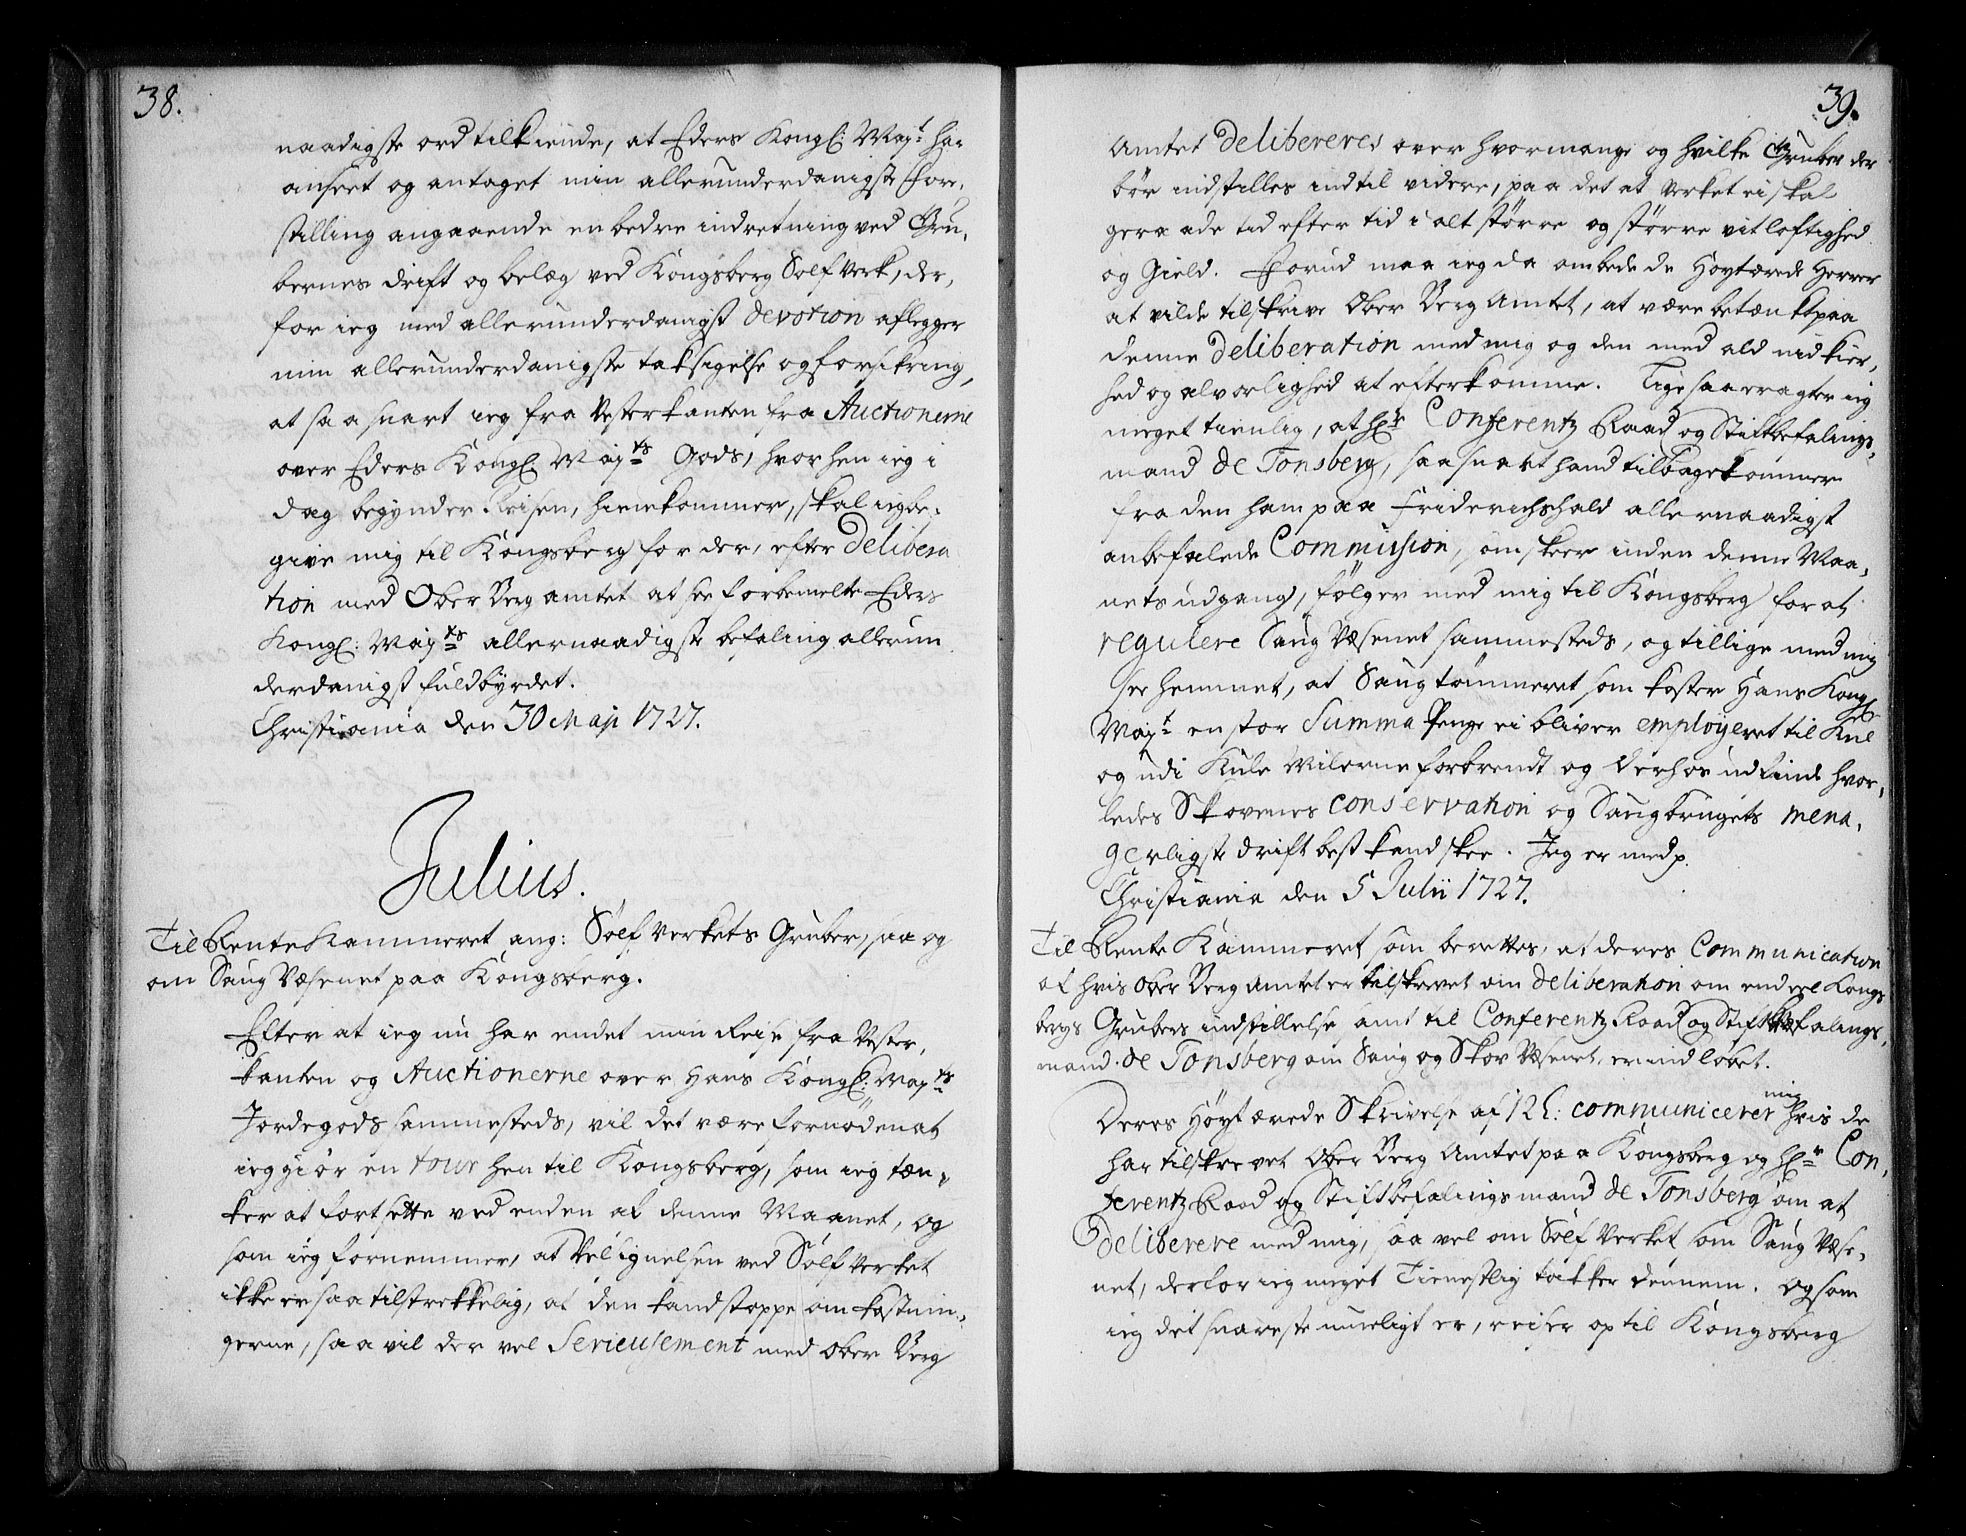 38.
naadigste ord tilkiende, at Eders Kongl: Majt. har
anseet og antaget min allerunderdanigste Fore,
stilling angaaende en bedre indretning ved Gru,
bernes drift og belæg ved Kongsberg Sølf Verk, der,
for ieg med allerunderdanigst devotion aflegger
min allerunderdanigste taksigelse og forsikring,
at saa snart ieg fra Vesterkanten fra Auctionerne
over Eders Kongl. Majts. Gods, hvorhen ieg i
dag begynder Reisen, hiemkommer, skal ieg be,
give mig til Kongsberg for der, efter delibera
tion med Ober Berg amtet at see forbemelte Eders
Kongl: Majts. allernaadigste befaling allerun
derdanigst fuldbyrdet.
Christiania den 30 Maji 1727.
Julius.
Til Rente Kammeret ang: Sølf Verkets Gruber, saa og
om Saug Væsenet paa Kongsberg.
Efter at ieg nu har endet min Reise fra Vester,
kanten og Auctionerne over Hans Kongl: Majts.
Jordegods sammesteds, vil det være fornøden at
ieg giør en tour hen til Kongsberg, som ieg tæn,
ker at fortsette ved enden af denne Maanet, og
som ieg fornemmer, at Velsignelsen ved Sølf Verket
ikke er saa tilstrekkelig, at den kand stoppe omkostnin,
gerne, saa vil der vel Serieusement med Ober Berg
39.
Amtet delibereres over hvormange og hvilke Gruber der
bør indstilles indtil videre, paa det at Verket ei skal
geraade tid efter tid i alt større og større vitløftighed
og Gield. Forud maa ieg da ombede de Høytærede Herrer
at vilde tilskrive Ober Berg Amtet, at være betænkt paa
denne deliberation med mig og den med ald nidkier,
hed og alvorlighed at efterkomme. Ligesaa eragter ieg
meget tienlig, at Hr. Conferentz Raad og Stiftbefalings,
mand de Tonsberg, saa snart hand tilbagekommer
fra den ham paa Friderichshald allernaadigst
anbefalede Commission, om skeer inden denne Maa,
nets udgang, følger med mig til Kongsberg for at
regulere Saug Væsenet sammesteds, og tillige med mig
see hemmet, at Saugtømmeret som koster Hans Kongl
Majt. en stor Summa Penge ei bliver employeret til Kul
og udi Kule Milerne forbrendt og derhos udfinde hvor,
ledes Skovenes conservation og Saugbrugets mena,
gerligste drift best kand skee. Jeg er med p.
Christiania den 5 Julii 1727.
Til Rente Kammeret som berettes, at deres Communication
af hvis Ober Berg Amtet er tilskrevet om deliberation om endeel Kongs
bergs Grubers indstillelse samt til Conferentz Raad og Stiftbefalings,
mand de Tonsberg om Saug og Skov Væsenet, er indløbet.
Deres Høyt ærede Skrivelse af 12 h: communicerer mig hvis de
har tilskrevet Ober Berg Amtet paa Kongsberg og Hr. Con,
ferentz Raad og Stiftbefalings mand de Tonsberg om at
deliberere med mig, saa vel om Sølf Verket som Saug Væse,
net, derfor ieg meget Tienestlig takker dennem. Og som
ieg det snareste mueligt er, reiser op til Kongsberg